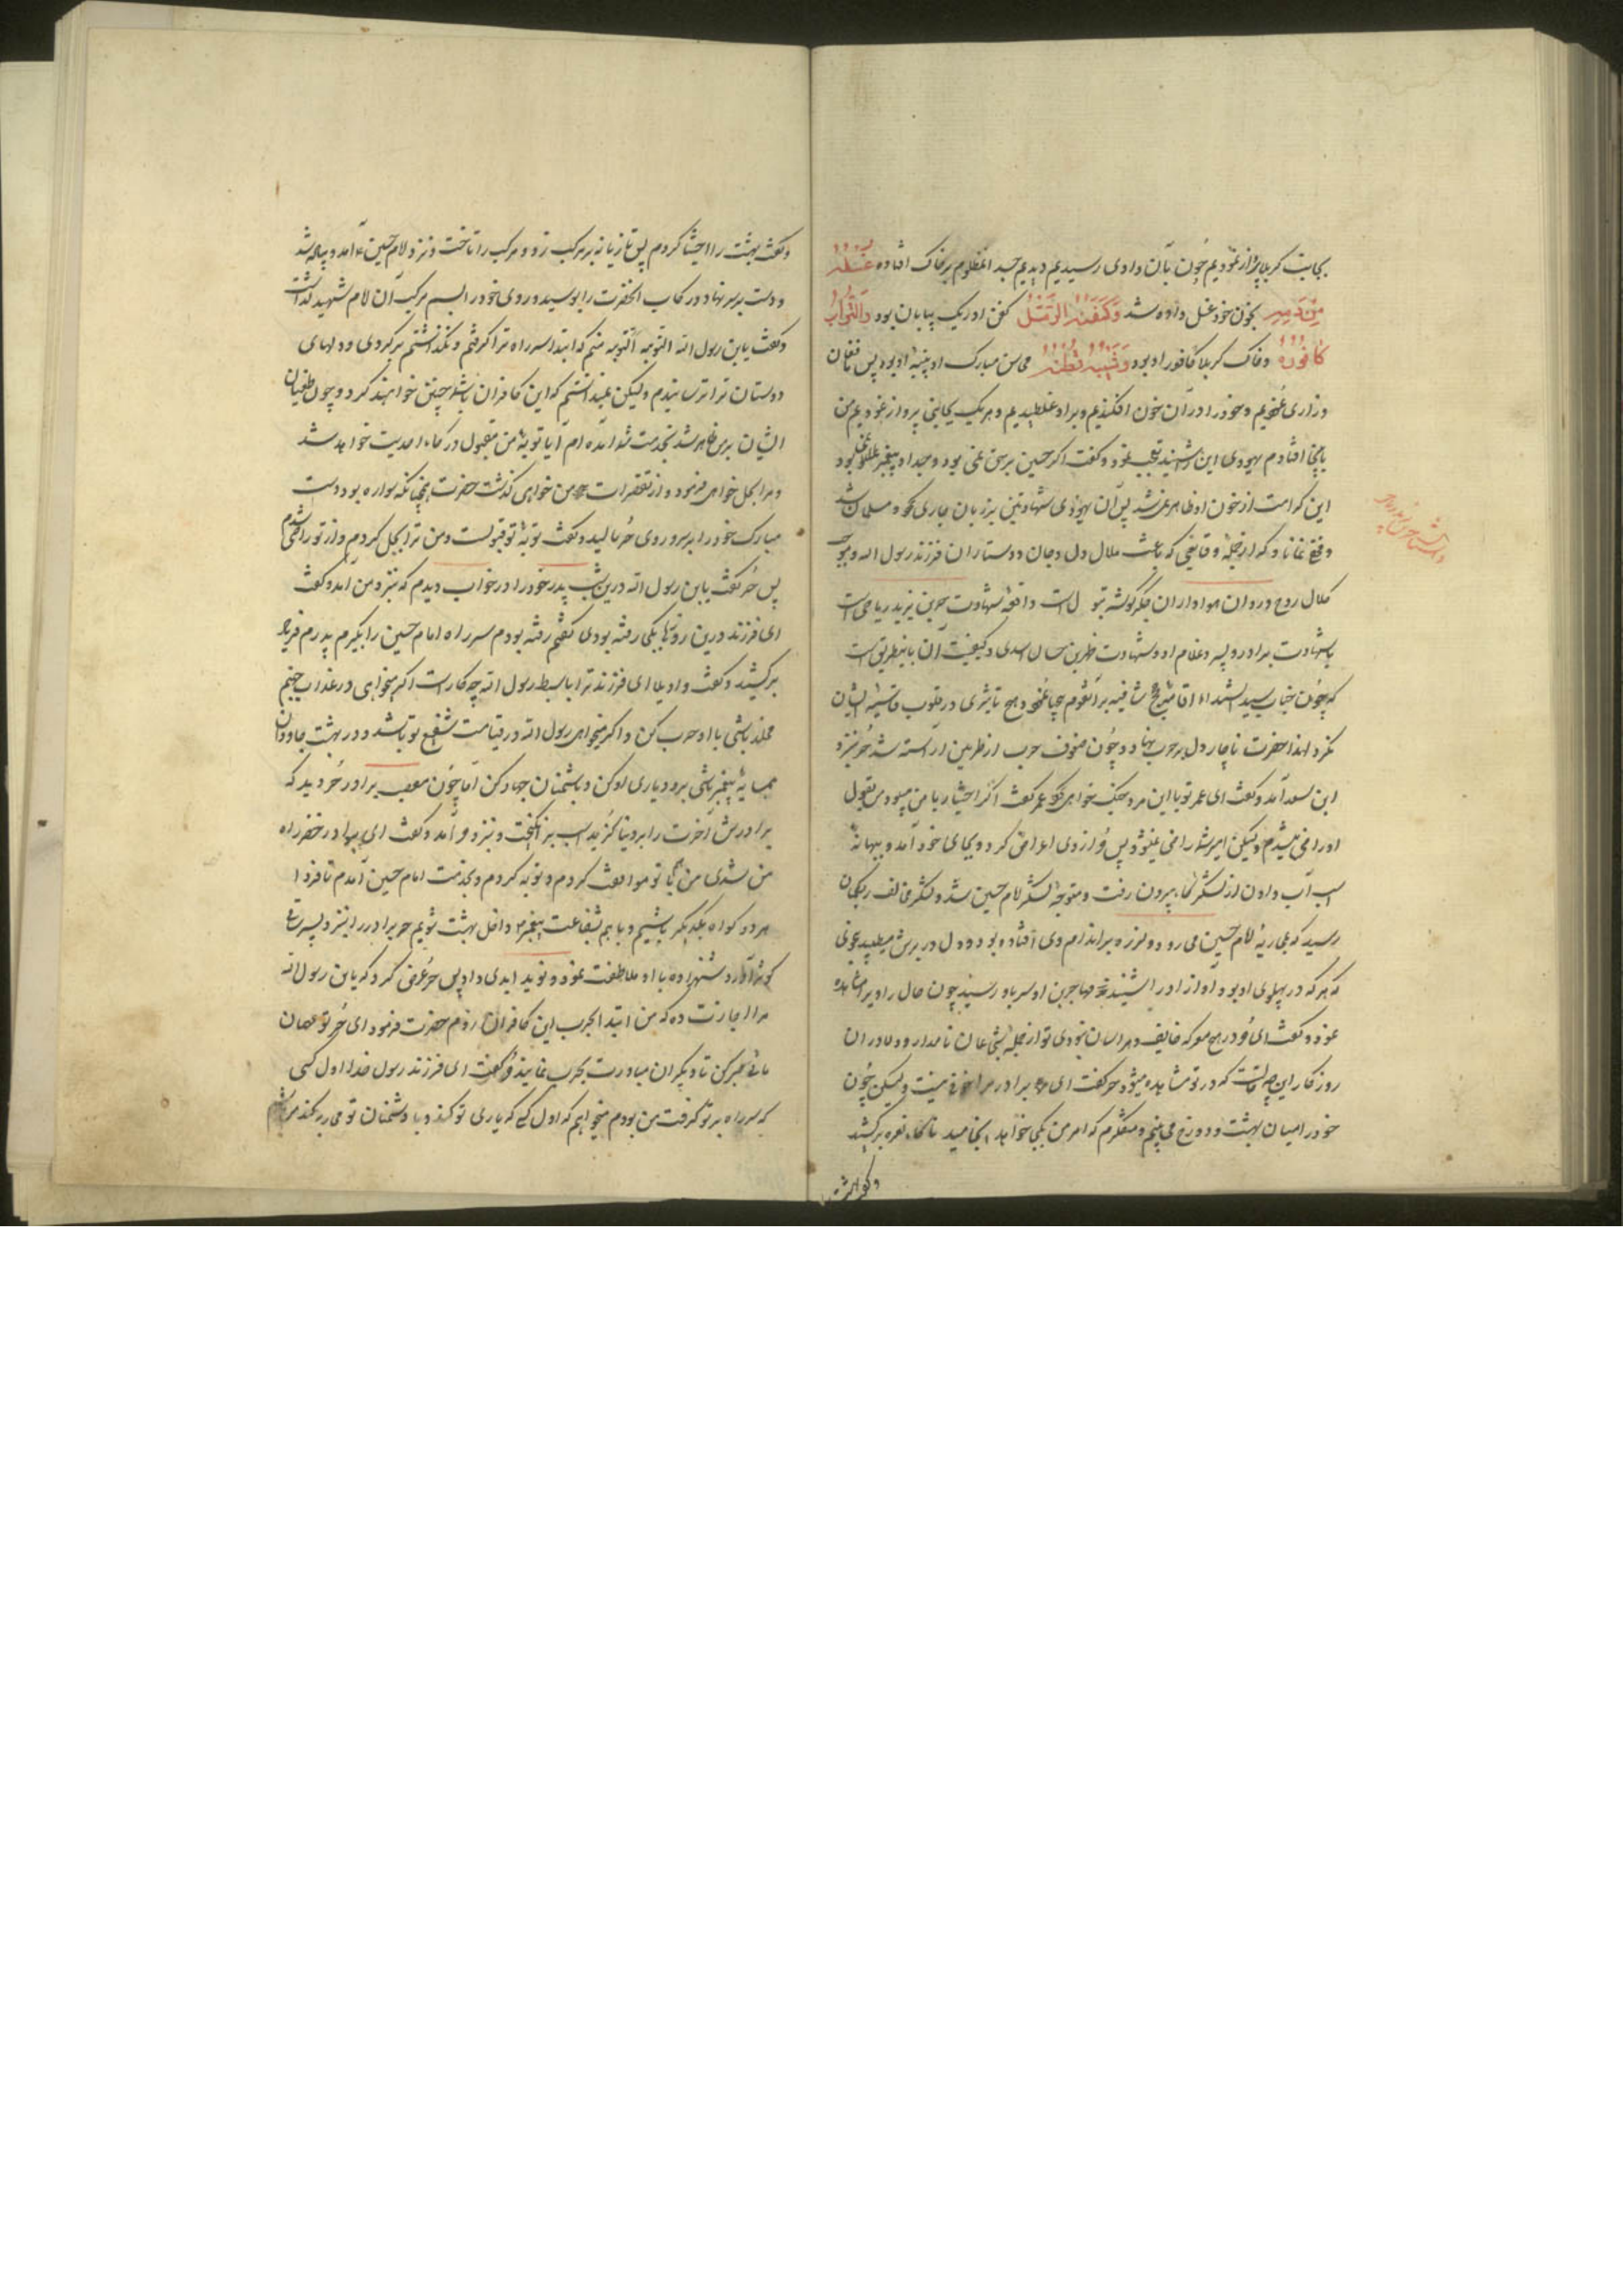 بجانب کربلا پرواز نمودیم چون بآن وادی رسیدیم دیدیم جسد آنمظلوم بر خاک افتاده غُسْلُهُ
مِنْ دَمِهِ بخون خود غسل داده شد وَکَفَنُهُ الرَّمْلُ کفن او ریک بیابان بود وَالتُّرَابُ
کَافُورُهُ و خاک کربلا کافور او بود وَشَیْبُهُ قُطْنُهُ محاسن مبارک او پنبه او بود پس فغان
و زاری نمودیم و خود را در آن خون افکندیم و بر او غلطیدیم و هر یک بجانبی پرواز نمودیم من
باینجا افتادم یهودی این را شنید تعجب نمود و گفت اگر حسین بر حق نمی بود و جد او پیغمبر بود
این کرامت از خون او ظاهر نمی شد پس آن یهودی شهادتین بر زبان جاری کرد و مسلمان شد
و مخفی نماناد که از جملهٔ وقایعی که باعث ملال دل و جان دوستاران فرزند رسول الله و موجب
کلال روح و روان هواداران جگرگوشه بتول است واقعهٔ شهادت حر بن یزید ریاحی است
با شهادت برادر و پسر و غلام او و شهادت ان اسدی و کیفیت آن باینطریق است
که چون جناب سیدالشهداء اقامت حجج شافیه بر آنقوم بیحیا نمود و هیچ تاثیری در قلوب قاسیهٔ ایشان
نکرد لهذا حضرت ناچار دل بر حرب نهاد و چون صفوف حرب از طرفین آراسته شد حر بنزد
ابن سعد آمد و گفت ای عمر تو با این مرد جنک خواهی کرد عمر گفت اگر اختیار با من میبود من بقول
او راضی میشدم ولیکن امیر شما راضی نمیشود پس حر از وی اعراض کرد و بجای خود آمد و ببهانهٔ
اسب آب دادن از لشکر گاه بیرون رفت و متوجه لشکر امام حسین شد و لشکر مخالف ریکمان
رسید که بمحاربهٔ امام حسین می رود و لرزه بر اندام وی افتاده بود و دل در برش میطپید بنوعی
که هر که در پهلوی او بود آواز او را شنید مهاجر بن اوس باو رسید چون حال را ویرا مشاهده
نمود و گفت ای حر در هیچ معرکه خایف و هراسان نبودی تو از جملهٔ شجاعان نامدار و دلاوران
روزگار این چه حالت است که در تو مشاهده میشود حر گفت ای برادر مرا خوفی نیست ولیکن چون
خود را میان بهشت و دوزخ می بینم و متفکرم که امر من بکجا خواهد انجامید ناگاه نعره برکشید
و گفت بهشت
و گفت بهشت را اختیار کردم پس تازیانه بر مرکب زد و مرکب را تاخت و نزد امام حسین آمد و پیاده شد
و دست بر سر نهاد و رکاب آنحضرت را بوسید و روی خود را بسم مرکب آن امام شهید گذاشت
و گفت یابن رسول الله التوبه التوبه منم که ابتدا سر راه ترا گرفتم و نگذاشتم برگردی و دلهای
دوستان ترا ترسانیدم ولیکن نمیدانستم که این کافران با شما چنین خواهند کرد و چون طغیان
ایشان بر من ظاهر شد بخدمت شما آمده ام آیا توبهٔ من مقبول درگاه احدیت خواهد شد
و مرا بحل خواهی فرمود و از تقصیرات من خواهی گذشت حضرت همچنانکه سواره بود دست
مبارک خود را بر سر و روی حر مالید و گفت توبهٔ تو قبولست و من ترا بحل کردم و از تو راضی شدم
پس حر گفت یابن رسول الله درین شب پدر خود را در خواب دیدم که بنزد من آمد و گفت
ای فرزند درین روزها بکجا رفته بودی گفتم رفته بودم سر راه امام حسین را بگیرم پدرم فریاد
برکشید و گفت واویلا ای فرزند ترا با سبط رسول الله چه کار است اگر میخواهی در عذاب جهنم
مخلد باشی با او حرب کن و اگر میخواهی رسول الله در قیامت شفیع تو باشد و در بهشت جاودان
همسایهٔ پیغمبر باشی برو و یاری او کن و با دشمنان جهاد کن اما چون مصعب برادر حر دید که
برادرش آخرت را بر دنیا گزید اسب برانگیخت و بنزد حر آمد و گفت ای برادر خضر راه
من شدی من با تو موافقت کردم و توبه کردم و بخدمت امام حسین آمدم تا فردا
هر دو گواه یکدیگر باشیم و با هم بشفاعت پیغمبر داخل بهشت شویم حر برادر را بنزد پسر ساقی
کوثر آورد شهزاده با او ملاطفت نمود و نوید ابدی داد پس حر عرض کرد که یابن رسول الله
مرا اجازت ده که من ابتدا بحرب این کافران روم حضرت فرمود ای حر تو مهمان
مائی صبر کن تا دیگران مبادرت بحرب نمایند حر گفت ای فرزند رسول خدا اول کسی
که سر راه بر تو گرفت من بودم میخواهم که اول کسی که یاری تو کند و با دشمنان تو محاربه کند من باشم